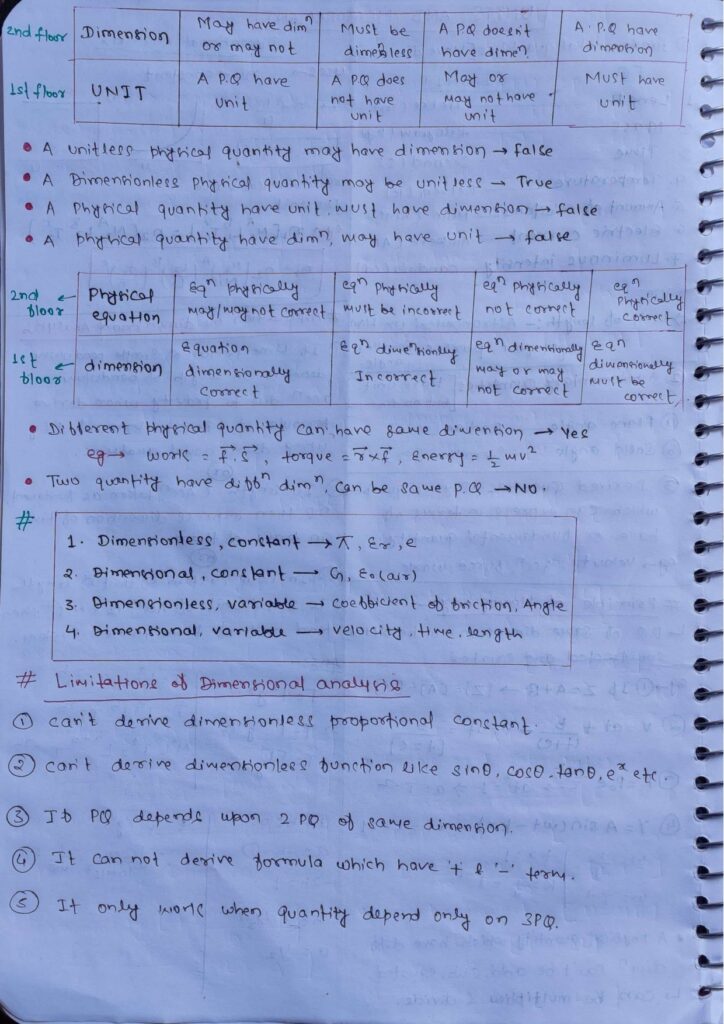 2nd floor Dimension May have dimⁿ or may not Must be dimenless A PQ doesn't have dimeⁿ. A.PQ have dimension
1st floor UNIT A P.Q have unit A PQ does not have unit May or May not have unit Must have unit
• A unitless physical quantity may have dimension → false
• A Dimensionless physical quantity may be unitless → True
• A Physical quantity have unit must have dimension → false
• A physical quantity have dimⁿ, may have unit → false
2nd floor ← Physical equation Eqⁿ physically may/may not correct eqⁿ Physically must be incorrect eqⁿ Physically not correct eqⁿ Physically correct
1st floor ← dimension Equation dimensionally correct Eqⁿ dimensionally Incorrect Eqⁿ dimensionally may or may not correct Eqn dimensionally must be correct
• Different physical quantity can have same dimension → Yes
eg → work = f⃗.s⃗, torque = r⃗×f⃗, Energy = ½ mv²
• Two quantity have diffⁿ dimⁿ, can be same P.Q → NO.
#
1. Dimensionless, constant → π, εr, e
2. Dimensional, constant → G, ε₀(air)
3. Dimensionless, variable → coefficient of friction, Angle
4. Dimensional, variable → velocity, time, length
# Limitations of Dimensional analysis
① can't derive dimensionless proportional constant.
② can't derive dimensionless function like sinθ, cosθ, tanθ, eˣ etc.
③ If PQ depends upon 2 PQ of same dimension.
④ It can not derive formula which have '+ & '-' term.
⑤ It only work when quantity depend only on 3PQ.